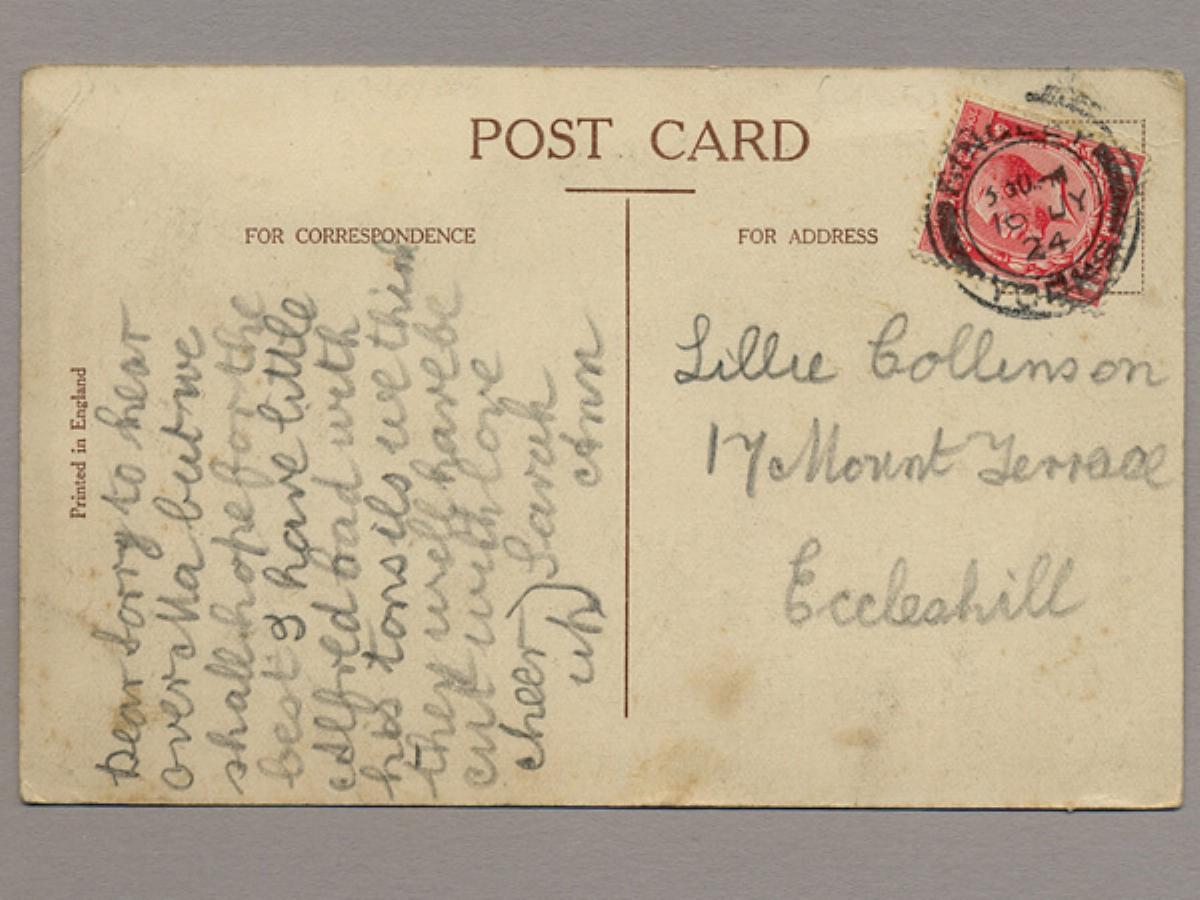 POST CARD
FOR CORRESPONDENCE
FOR ADDRESS
BINGLEY
JY
24
YORKS
Printed in England
Dear Sorry to hear
over Ma but we
shall hope for the
best I have little
Alfred bad with
his tonsils we think
they will have be
cut with love
cheer Sarah
up Ann
Lillie Collinson
17 Mount Terrace
Eccleshill